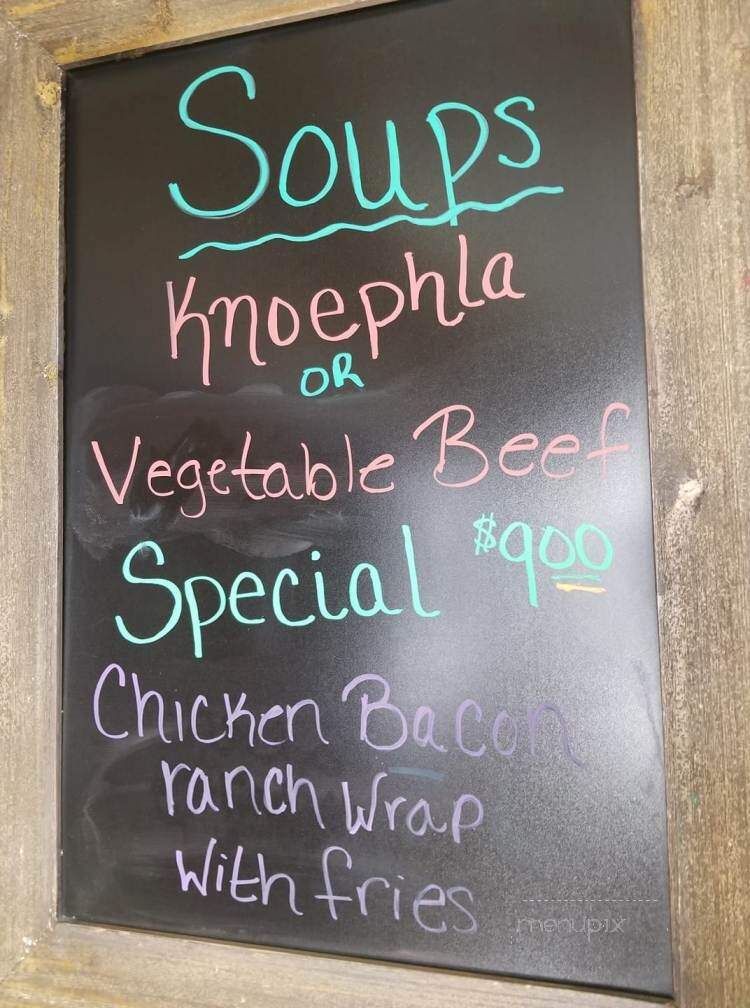 Soups
Knoephla
OR
Vegetable Beef
Special $900
Chicken Bacon
ranch Wrap
With fries
menupix